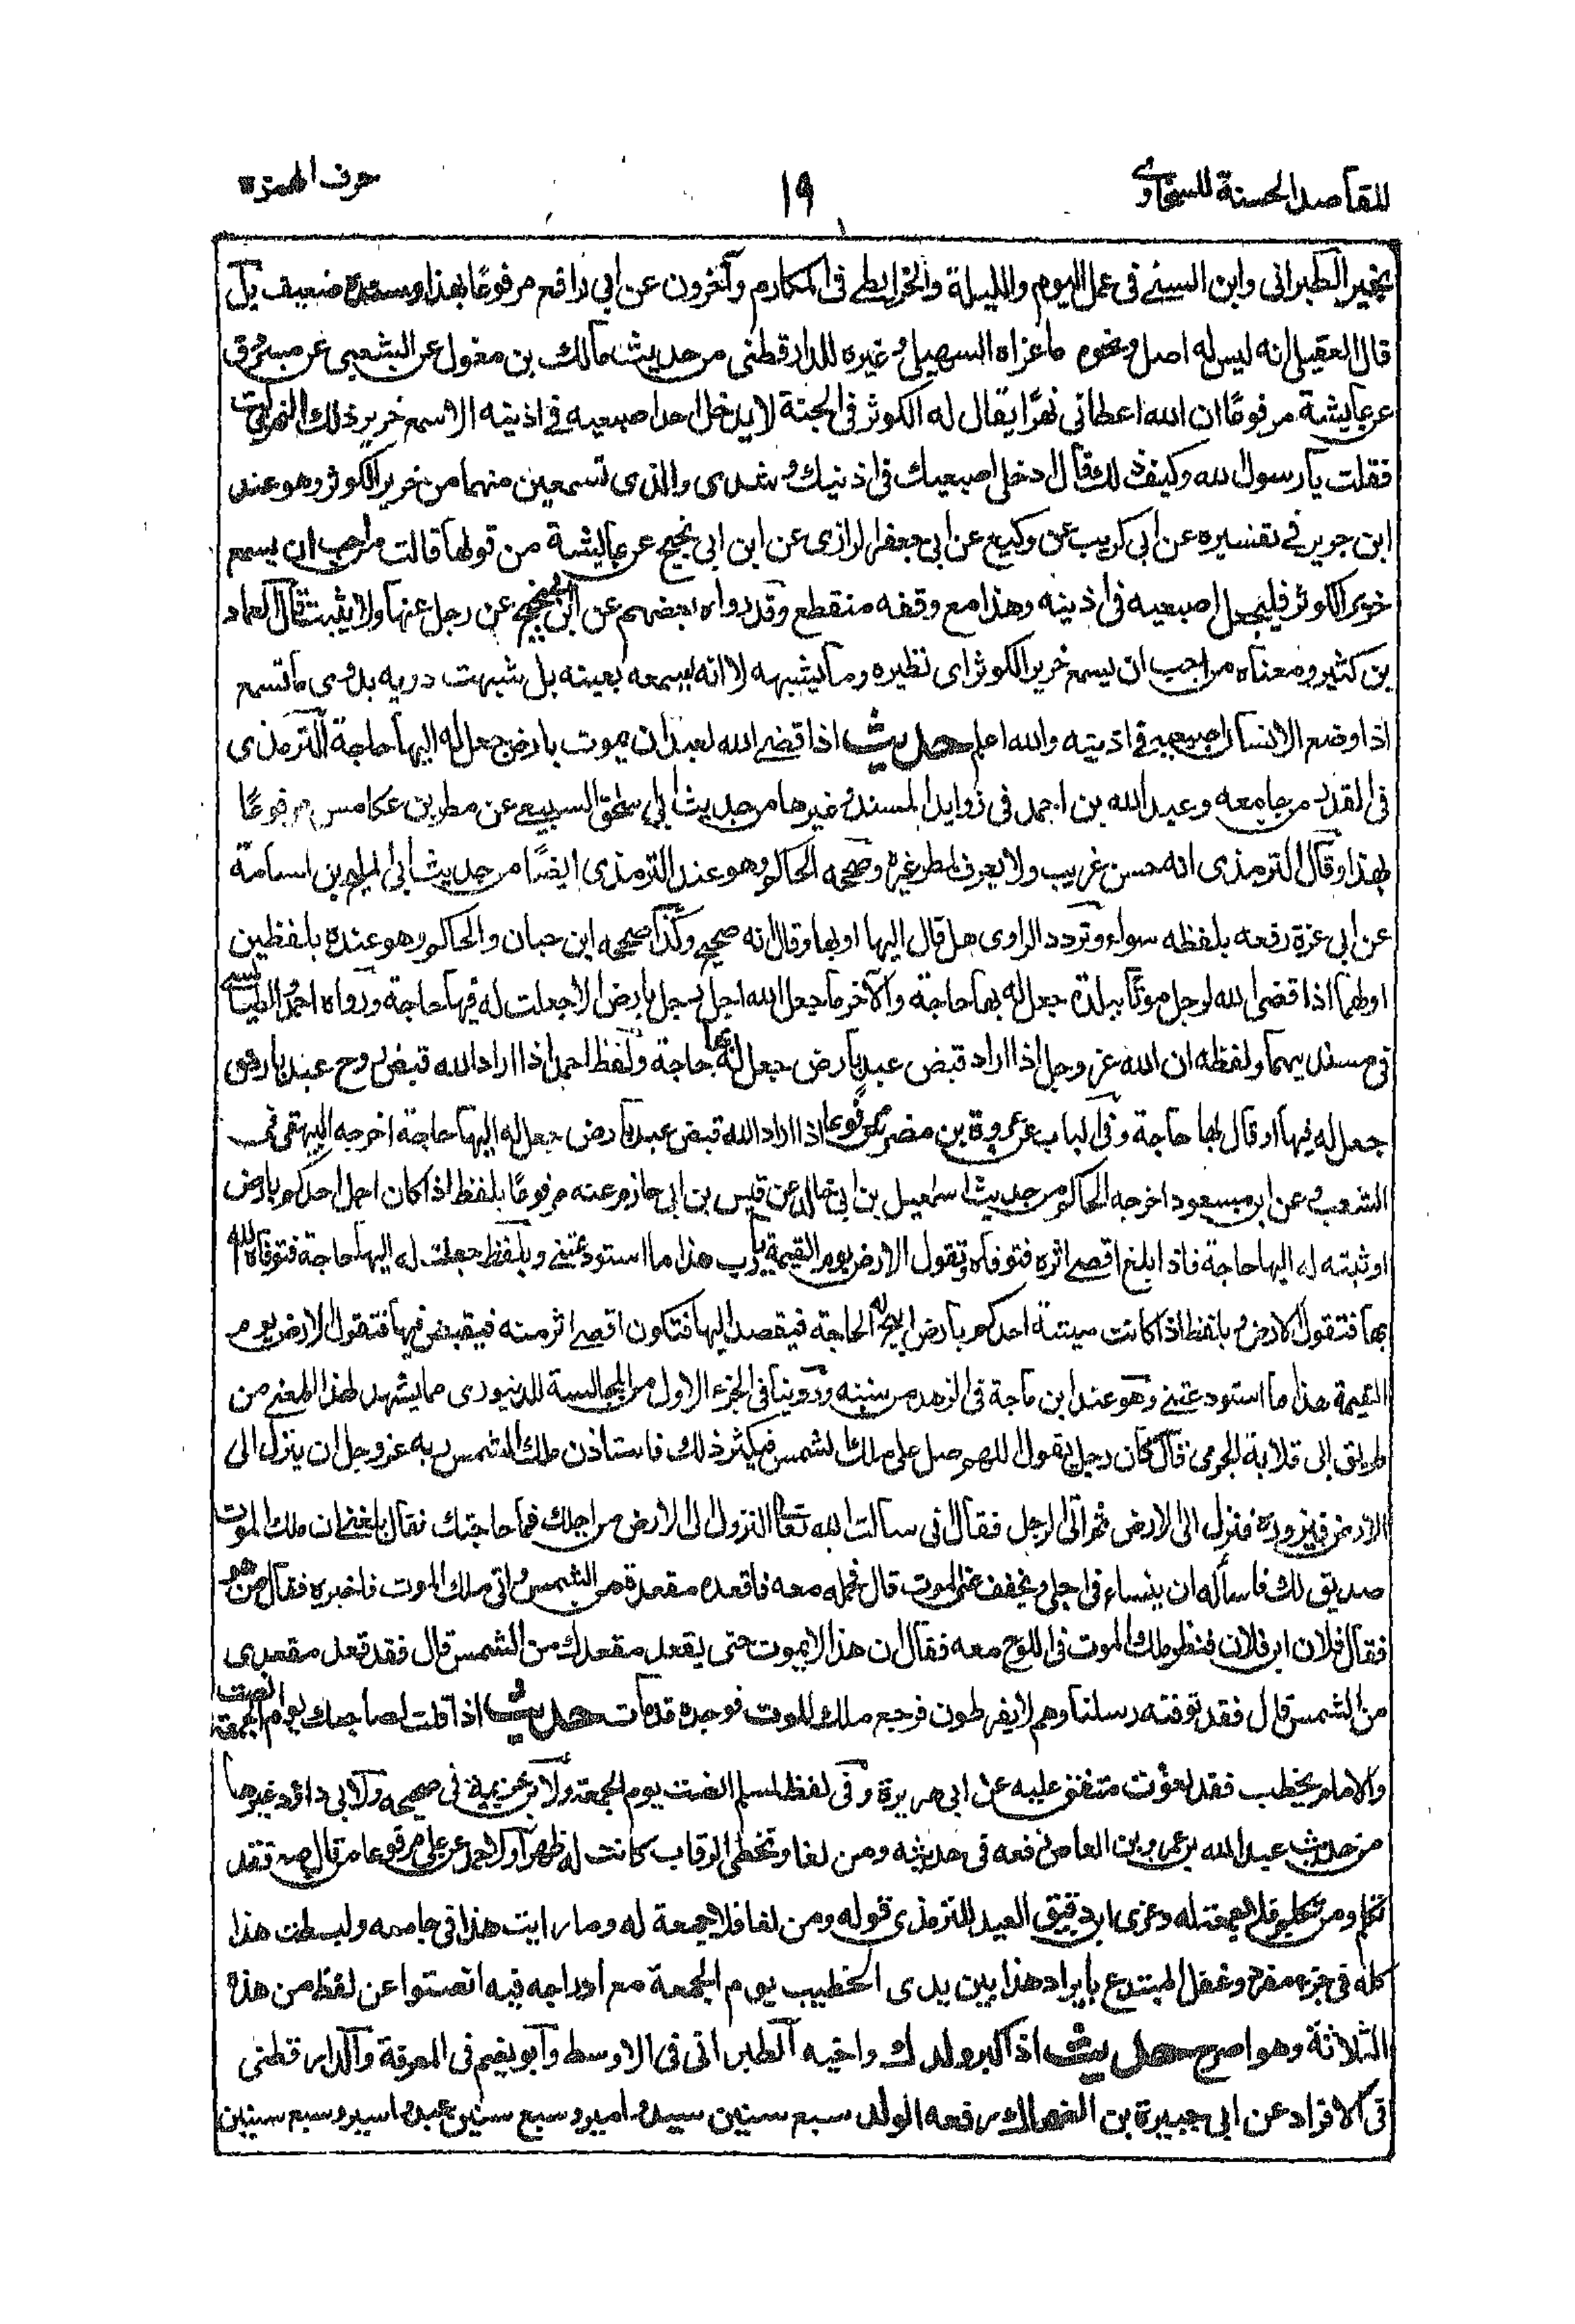 المقاصد الحسنة للسخاوى
١٩
حرف الهمزة
بخير الطبرانى وابن السنى فى عمل اليوم والليلة والخرايطى فى المكارم وآخرون عن ابي رافع مرفوعًا بهذا وسنده ضعيف بل
قال العقيلى انه ليس له اصل ونحوه ما عزاه السهيلى وغيره للدارقطنى من حديث مالك بن مغول عن الشعبى عن مسروق
عن عايشة مرفوعًا ان الله اعطانى نهرًا يقال له الكوثر فى الجنة لا يدخل احد اصبعيه فى اذنيه الا سمع خرير ذلك النهر قالت
فقلت يا رسول الله وكيف ذلك قال ادخلى اصبعيك فى اذنيك وشدى والذى تسمعين منهما من خرير الكوثر وهو عند
ابن جرير فى تفسيره عن ابى كريب عن وكيع عن ابى جعفر الرازى عن ابن ابى نجيح عن عايشة من قولها قالت من احب ان يسمع
خرير الكوثر فليجعل اصبعيه فى اذنيه وهذا مع وقفه منقطع وقد رواه بعضهم عن ابن ابى نجيح عن رجل عنها ولا يثبت قال العماد
بن كثير ومعناه من احب ان يسمع خرير الكوثر اى نظيره وما يشبهه لا انه يسمعه بعينه بل شبهت دويه بدوى ما تسمع
اذا وضع الانسان اصبعيه فى اذنيه والله اعلم حديث اذا قضى الله لعبد ان يموت بارض جعل له اليها حاجة الترمذى
فى القدر من جامعه وعبد الله بن احمد فى زوايد المسند وغيرها من حديث ابى اسحق السبيعى عن مطر بن عكامس مرفوعًا
بهذا وقال الترمذى انه حسن غريب ولا يعرف لمطر غيره وصححه الحاكم وهو عند الترمذى ايضًا من حديث ابى المليح بن اسامة
عن ابى عزة رفعه بلفظه سواء وتردد الراوى هل قال اليها او بها وقال انه صحيح وكذا صححه ابن حبان والحاكم وهو عنده بلفظين
اولهما اذا قضى الله لرجل موتًا ببلدة جعل له بها حاجة والآخر ما جعل الله اجل رجل بارض الا جعلت له فيها حاجة ورواه احمد والطيالسى
فى مسنديهما ولفظه ان الله عز وجل اذا اراد قبض عبد بارض جعل له بها حاجة ولفظ احمد اذا اراد الله قبض روح عبد بارض
جعل له فيها او قال لها حاجة وفى الباب عن عروة بن مضرس مرفوعا اذا اراد الله قبض عبد بارض جعل له اليها حاجة اخرجه البيهقى فى
الشعب وعن ابن مسعود اخرجه الحاكم من حديث اسمعيل بن ابى خالد عن قيس بن ابى حازم عنه مرفوعًا بلفظ اذا كان اجل احدكم بارض
اوثبته له اليها حاجة فاذا بلغ اقصى اثره فتوفاه وتقول الارض يوم القيمة يا رب هذا ما استودعتنى وبلفظ جعلت له اليها حاجة فتوفاه الله
بها فتقول الارض وبلفظ اذا كانت ميتة احدكم بارض اتيح له الحاجة فيقصد اليها فتكون اقصى اثر منه فيقبض فيها فتقول الارض يوم
القيمة هذا ما استودعتنى وهو عند ابن ماجة فى الزهد من سننه وروينا فى الجزء الاول من المجالسة للدينورى مما يشهد لهذا المعنى من
طريق ابى قلابة الجرمى قال كان رجل يقول اللهم صل على ملك الشمس فيكثر ذلك فاستاذن ملك الشمس ربه عز وجل ان ينزل الى
الارض فيزوره فنزل الى الارض ثم اتى الرجل فقال انى سالت الله تعالى النزول الى الارض من اجلك فما حاجتك فقال بلغنى ان ملك الموت
صديق لك فاسأله ان ينساء فى اجلى ويخفف عنى الموت قال فحمله معه فاقعده مقعده من الشمس واتى ملك الموت فاخبره فقال من هو
فقال فلان ابن فلان فنظر ملك الموت فى اللوح معه فقال ان هذا لا يموت حتى يقعد مقعدك من الشمس قال فقد قعد مقعدى
من الشمس قال فقد توفته رسلنا وهم لا يفرطون فرجع ملك الموت فوجده قد مات حديث اذا قلت لصاحبك يوم الجمعة انصت
والامام يخطب فقد لغوت متفق عليه عن ابى هريرة وفى لفظ لمسلم انصت يوم الجمعة ولابن خزيمة فى صحيحه ولابى داود وغيرهما
من حديث عبد الله بن عمرو بن العاص رفعه فى حديثه ومن لغا وتخطى الرقاب كانت له ظهرا ولاحمد عن على مرفوعا من قال صه فقد
تكلم ومن تكلم فلا جمعة له وعزى ابن دقيق العيد للترمذى قوله ومن لغا فلا جمعة له وما رايت هذا فى جامعه وبسطت هذا
كله فى جزء مفرد وغفل المبتدع بايراد هذا بين يدى الخطيب يوم الجمعة مع ادراجه فيه انصتوا عن لفظ من هذه
الثلاثة وهو اصرح حديث اذا كبر ولدك واخيه الطبرانى فى الاوسط وابو نعيم فى المعرفة والدارقطنى
فى الافراد عن ابى جبيرة بن الضحاك رفعه الولد سبع سنين سيد وامير وسبع سنين عبد واسير وسبع سنين